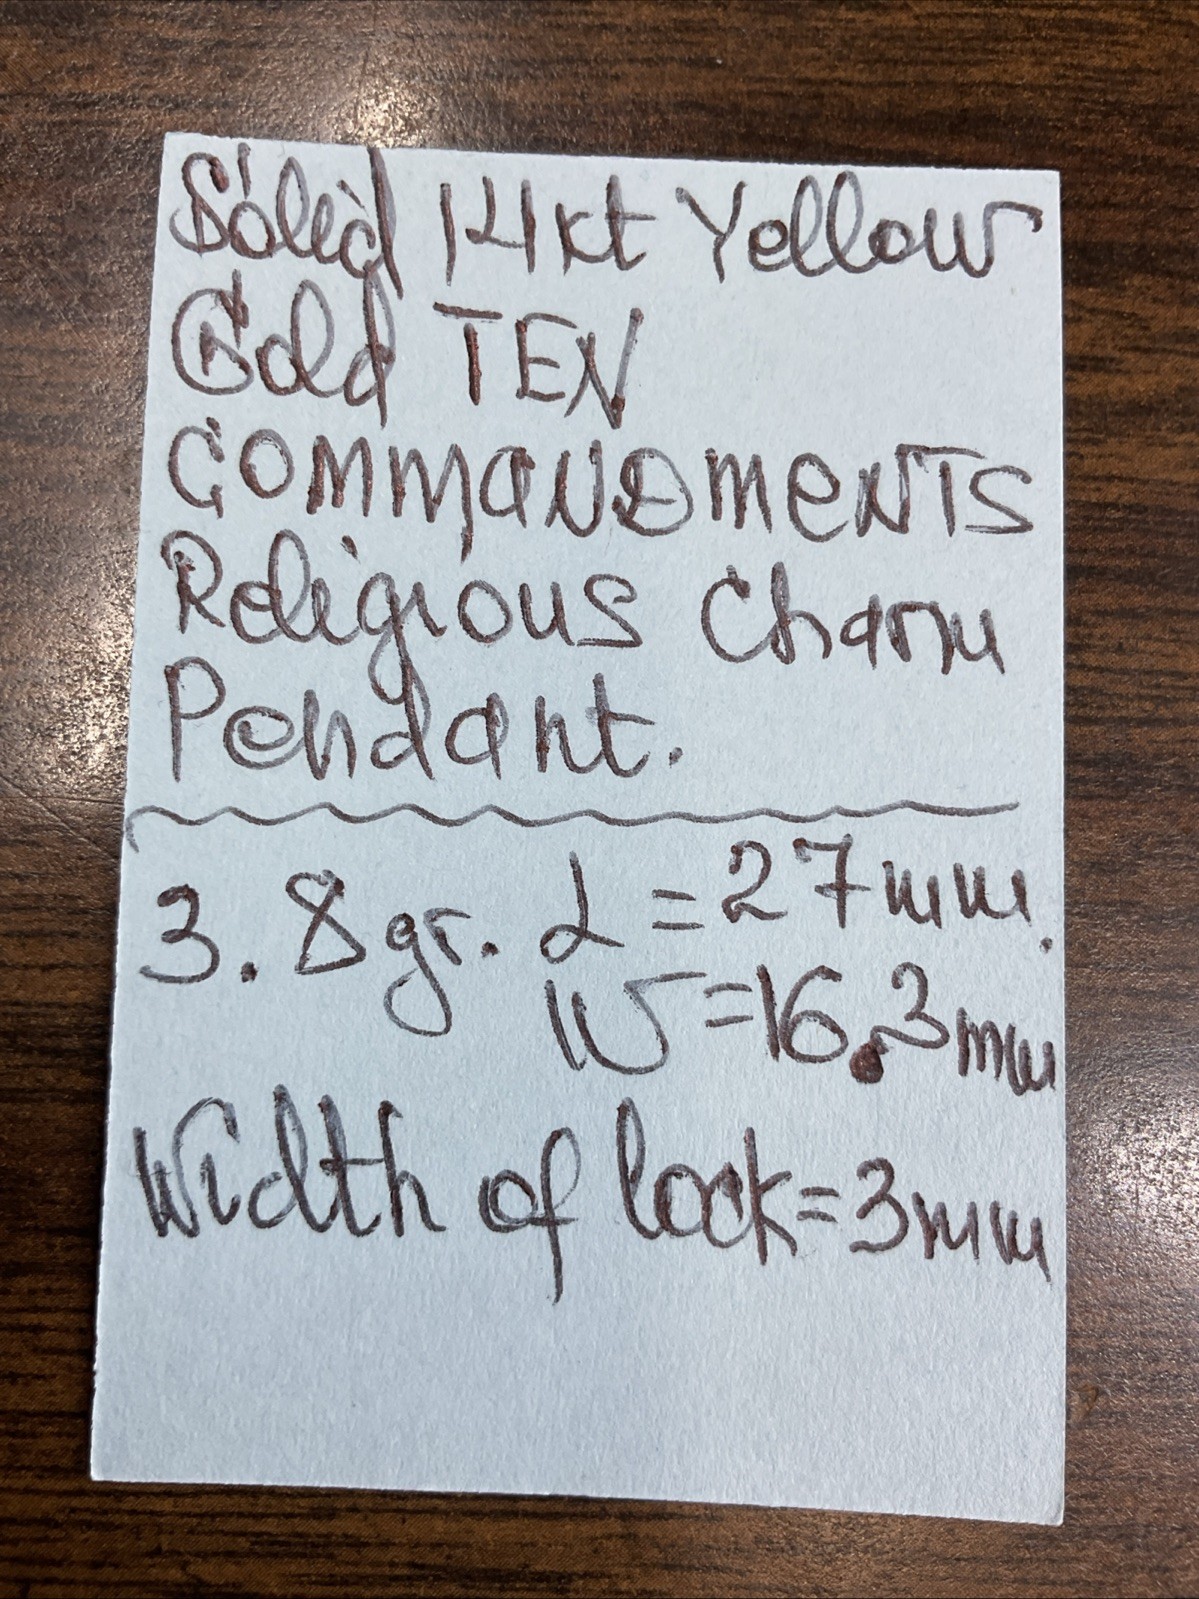 Solid 14kt Yellow
Gold TEN
COMMANDMENTS
Religious Charm
Pendant.
3.8gr. L=27mm.
W=16.3mm
Width of lock=3mm